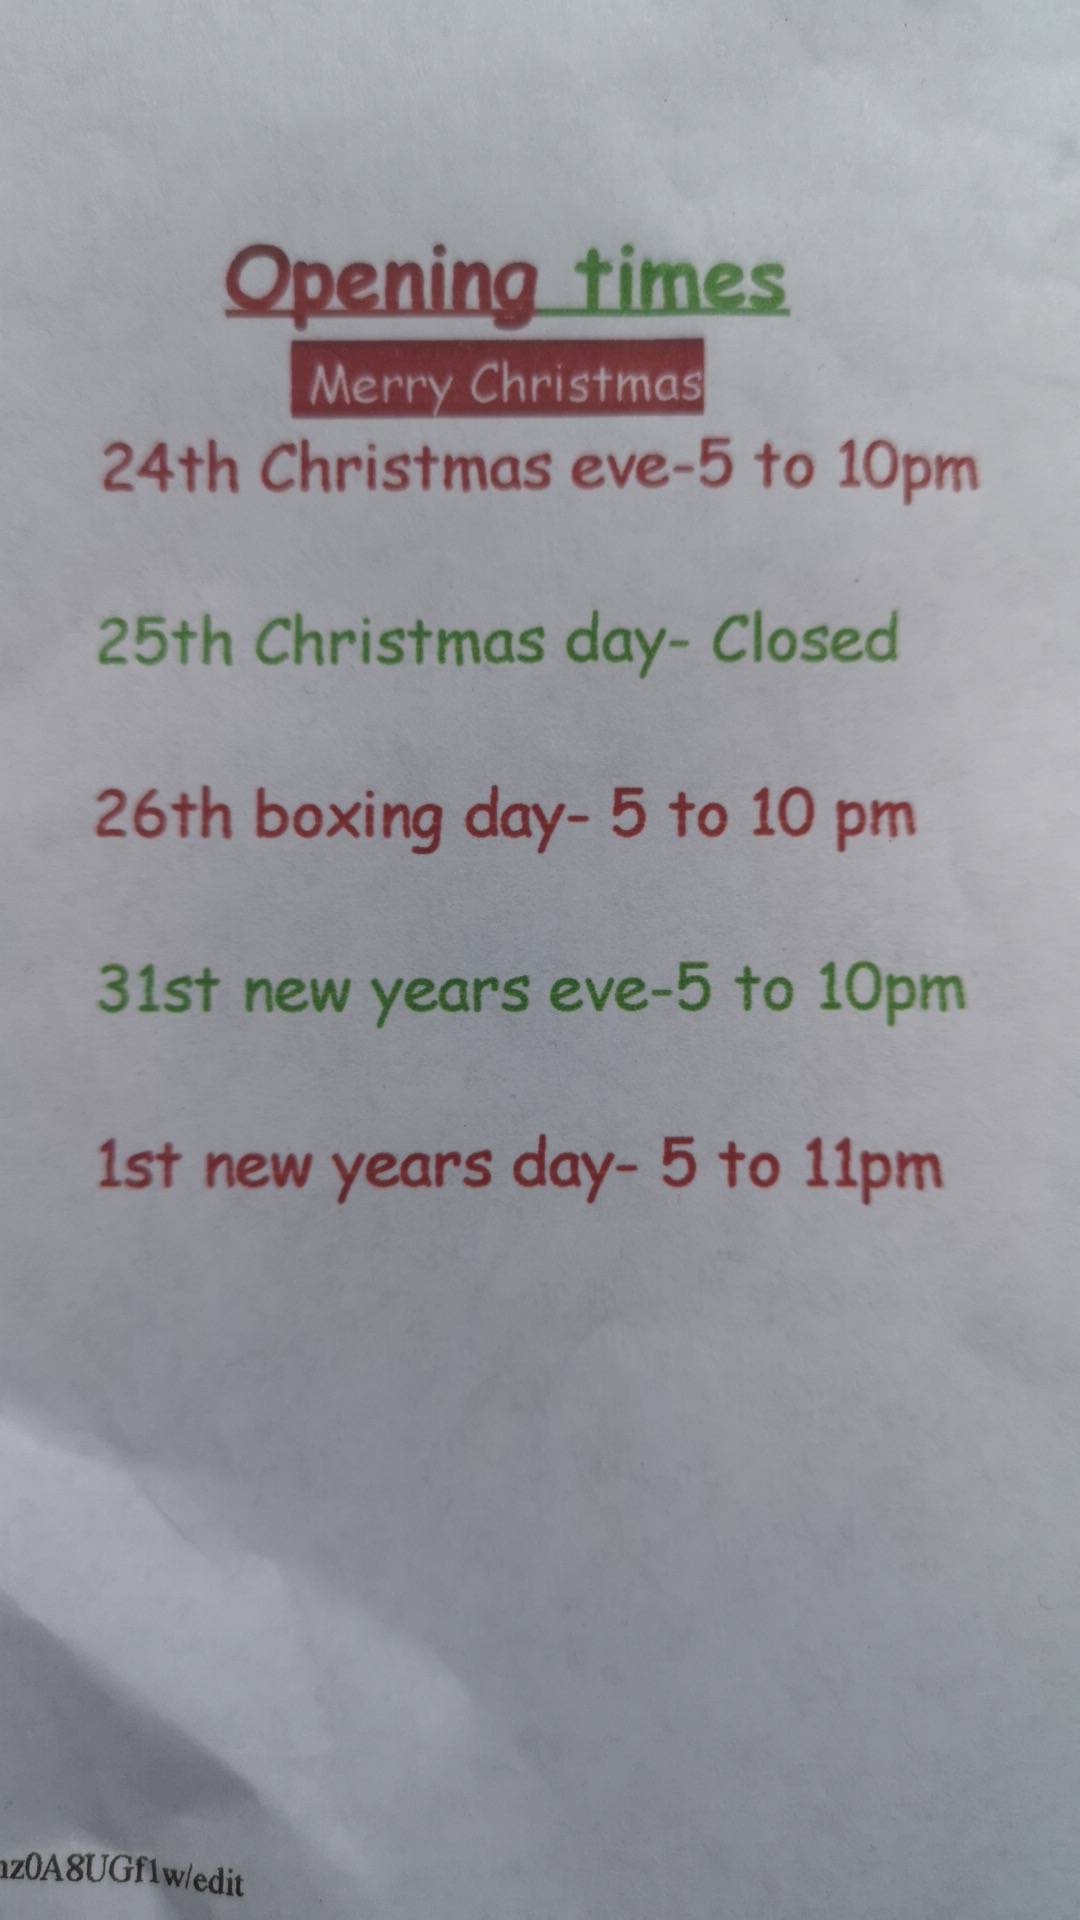 Opening times
Merry Christmas
24th Christmas eve-5 to 10pm
25th Christmas day- Closed
26th boxing day- 5 to 10 pm
31st new years eve-5 to 10pm
1st new years day- 5 to 11pm
z0A8UGf1w/edit